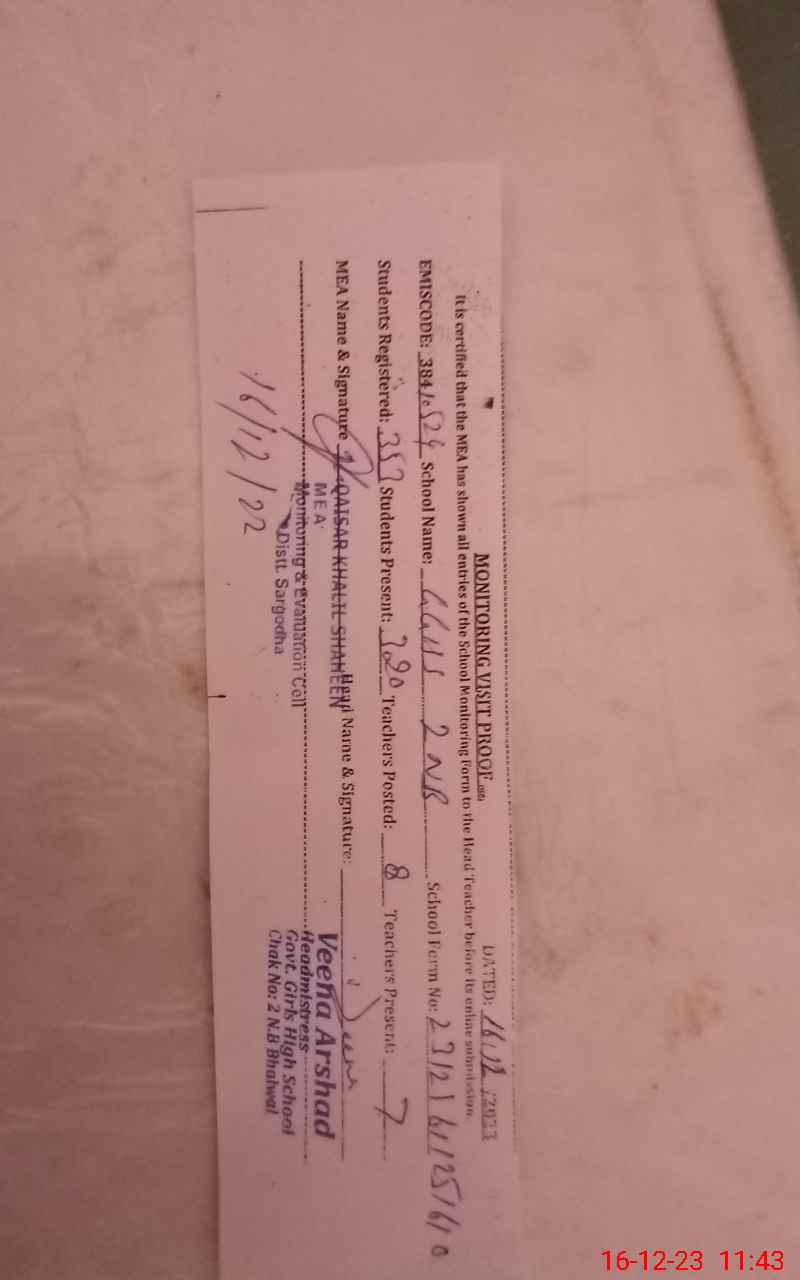 MONITORING VISIT PROOF
DATED: 16/12/2023
It is certified that the MEA has shown all entries of the School Monitoring Form to the Head Teacher before its online submission.
EMISCODE: 384 School Name: GGHS 2 NB School Form No:
Students Registered: Students Present: 320 Teachers Posted: 8 Teachers Present: 7
MEA Name & Signature QAISAR KHALIL SHAHEEN Head Name & Signature:
MEA
Monitoring & Evaluation Cell
Distt. Sargodha
16/12/22
Veena Arshad
Headmistress
Govt. Girls High School
Chak No: 2 N.B Bhalwal
16-12-23 11:43